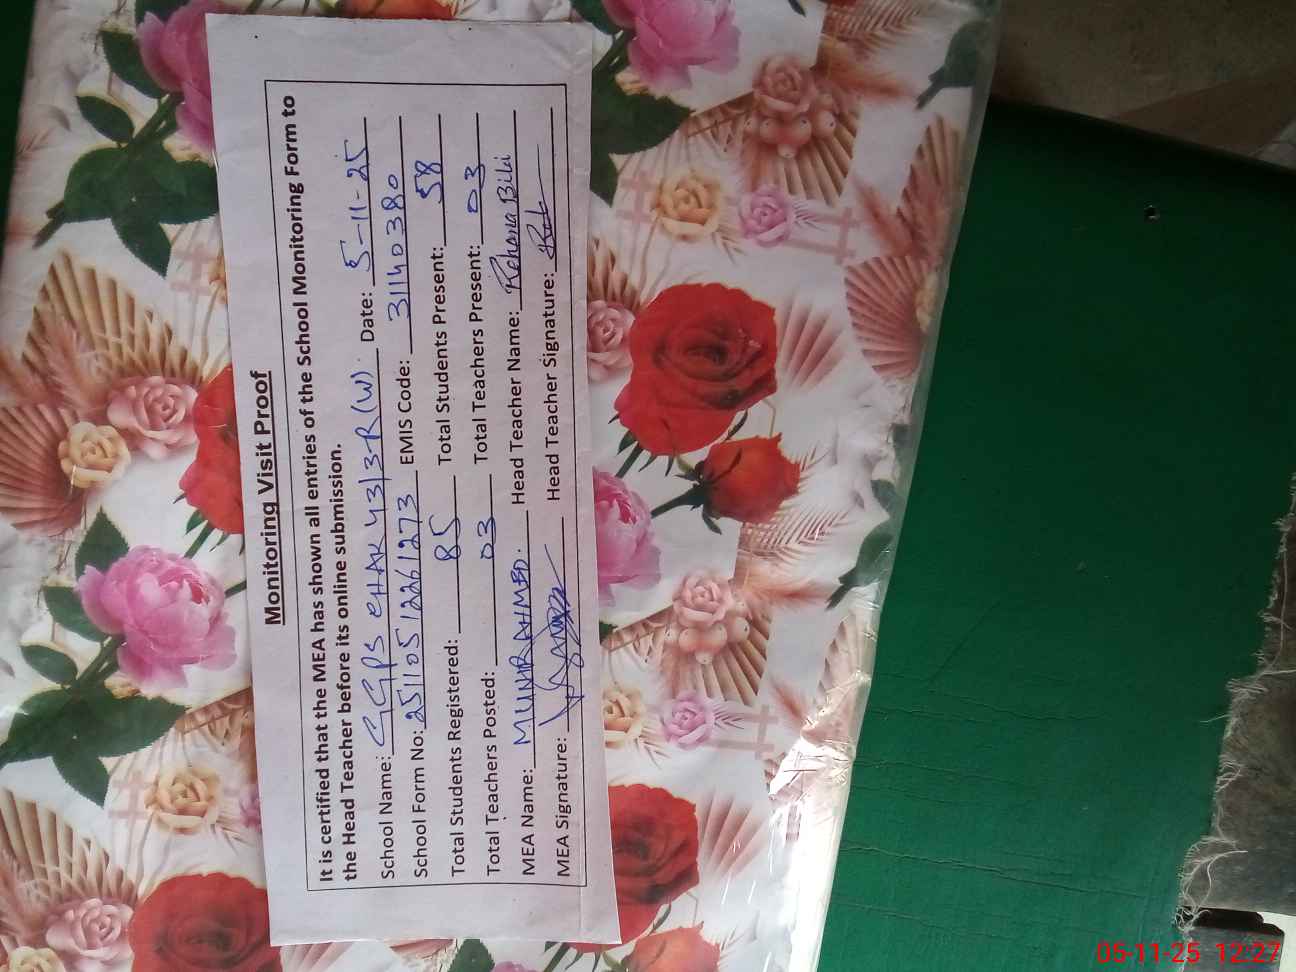 Monitoring Visit Proof
It is certified that the MEA has shown all entries of the School Monitoring Form to
the Head Teacher before its online submission.
School Name: GGPS CHAK 43/3-R(W). Date: 5-11-25
School Form No: 25110512261273 EMIS Code: 31140380
Total Students Registered: 85 Total Students Present: 58
Total Teachers Posted: 03 Total Teachers Present: 03
MEA Name: MUNIR AHMED. Head Teacher Name: Rehana Bibi
MEA Signature: Head Teacher Signature:
05-11-25 12:27